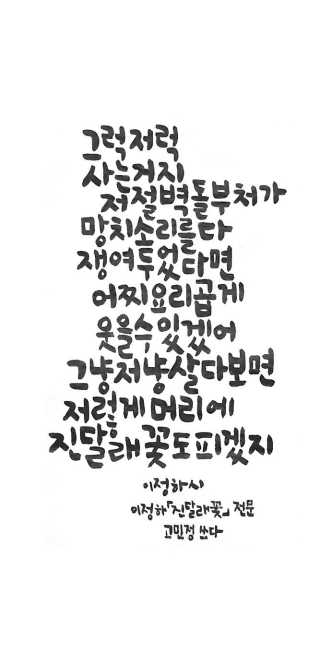 그럭저럭
사는거지
저절벽돌부처가
망치소리를다
쟁여두었다면
어찌요리곱게
웃을수있겠어
그냥저냥살다보면
저렇게머리에
진달래꽃도피겠지
이정하시
이정하「진달래꽃」전문
고민정 쓰다